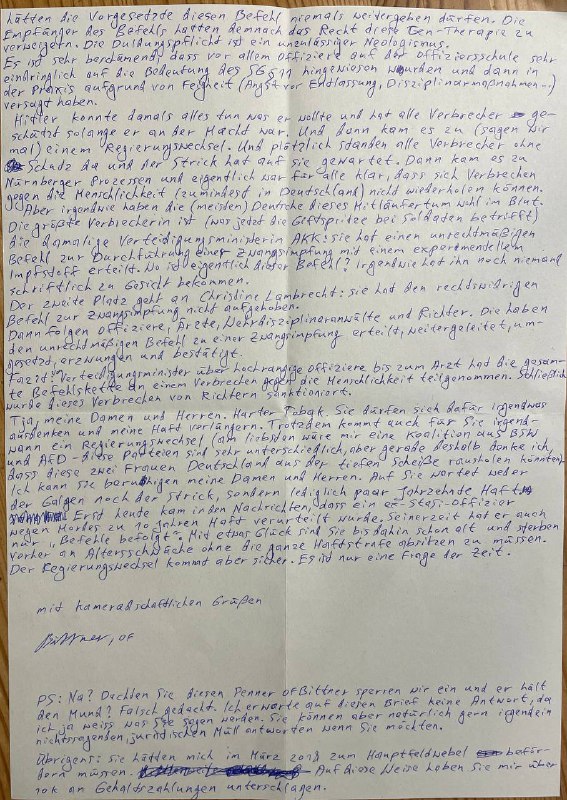 hätten die Vorgesetzte diesen Befehl niemals weitergeben dürfen. Die
Empfänger des Befehls hatten demnach das Recht diese Gen-Therapie zu
verweigern. Die Duldungspflicht ist ein unzulässiger Neologismus.
Es ist sehr beschämend, dass vor allem Offiziere auf der Offiziersschule sehr
eindringlich auf die Bedeutung des SG §11 hingewiesen wurden und dann in
der Praxis aufgrund von Feigheit (Angst vor Entlassung, Disziplinarmaßnahmen...)
versagt haben.
Hitler konnte damals alles tun was er wollte und hat alle Verbrecher ge-
schützt solange er an der Macht war. Und dann kam es zu (sagen wir
mal) einem Regierungswechsel. Und plötzlich standen alle Verbrecher ohne
Schutz da und der Strick hat auf sie gewartet. Dann kam es zu
Nürnberger Prozessen und eigentlich war für alle klar, dass sich Verbrechen
gegen die Menschlichkeit (zumindest in Deutschland) nicht wiederholen können.
Aber irgendwie haben die (meisten) Deutsche dieses Mitläufertum wohl im Blut.
Die größte Verbrecherin ist (was jetzt die Giftspritze bei Soldaten betrifft)
die damalige Verteidigungsministerin AKK: sie hat einen unrechtmäßigen
Befehl zur Durchführung einer Zwangsimpfung mit einem experimentellem
Impfstoff erteilt. Wo ist eigentlich dieser Befehl? Irgendwie hat ihn noch niemand
schriftlich zu Gesicht bekommen.
Der zweite Platz geht an Christine Lambrecht: sie hat den rechtswidrigen
Befehl zur Zwangsimpfung nicht aufgehoben.
Dann folgen Offiziere, Ärzte, Wehrdisziplinaranwälte und Richter. Die haben
den unrechtmäßigen Befehl zu einer Zwangsimpfung erteilt, weitergeleitet, um-
gesetzt, erzwungen und bestätigt.
Fazit: Verteidigungsminister über hochrangige Offiziere bis zum Arzt hat die gesam-
te Befehlskette an einem Verbrechen gegen die Menschlichkeit teilgenommen. Schließlich
wurde dieses Verbrechen von Richtern sanktioniert.
Tja, meine Damen und Herren. Harter Tobak. Sie dürfen sich dafür irgendwas
ausdenken und meine Haft verlängern. Trotzdem kommt auch für Sie irgend-
wann ein Regierungswechsel (am liebsten wäre mir eine Koalition aus BSW
und AfD - diese Parteien sind sehr unterschiedlich, aber gerade deshalb denke ich,
dass diese zwei Frauen Deutschland aus der tiefen Scheiße rausholen könnten)
Ich kann Sie beruhigen meine Damen und Herren. Auf Sie wartet weder
der Galgen noch der Strick, sondern lediglich paar Jahrzehnte Haft
Erst heute kam in den Nachrichten, dass ein Stasi-Offizier
wegen Mordes zu 10 Jahren Haft verurteilt wurde. Seinerzeit hat er auch
nur "Befehle befolgt". Mit etwas Glück sind Sie bis dahin schon alt und sterben
vorher an Altersschwäche ohne die ganze Haftstrafe absitzen zu müssen.
Der Regierungswechsel kommt aber sicher. Es ist nur eine Frage der Zeit.
mit kameradschaftlichen Grüßen
Bittner, OF
PS: Na? Dachten Sie diesen Penner OFBittner sperren wir ein und er hält
den Mund? Falsch gedacht. Ich erwarte auf diesen Brief keine Antwort, da
ich ja weiss was Sie sagen werden. Sie können aber natürlich gern irgendein
nichtssagenden, juristischen Müll antworten wenn Sie möchten.
Übrigens: Sie hätten mich im März 2018 zum Hauptfeldwebel beför-
dern müssen. Auf diese Weise haben Sie mir über
10k an Gehaltszahlungen unterschlagen.